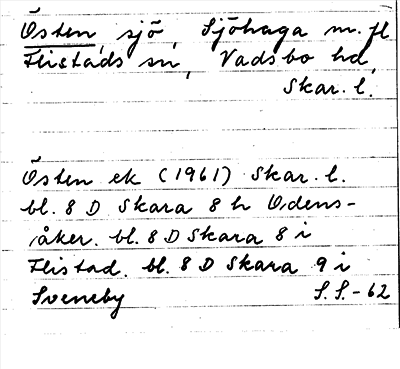 Östen, sjö, Sjöhaga m. fl
Flistads sn, Vadsbo hd,
Skar. l.
Östen ek (1961) Skar. l.
bl. 8 D Skara 8 h Odens-
åker. bl. 8 D Skara 8 i
Flistad. bl. 8 D Skara 9 i
Sveneby S. S. - 62